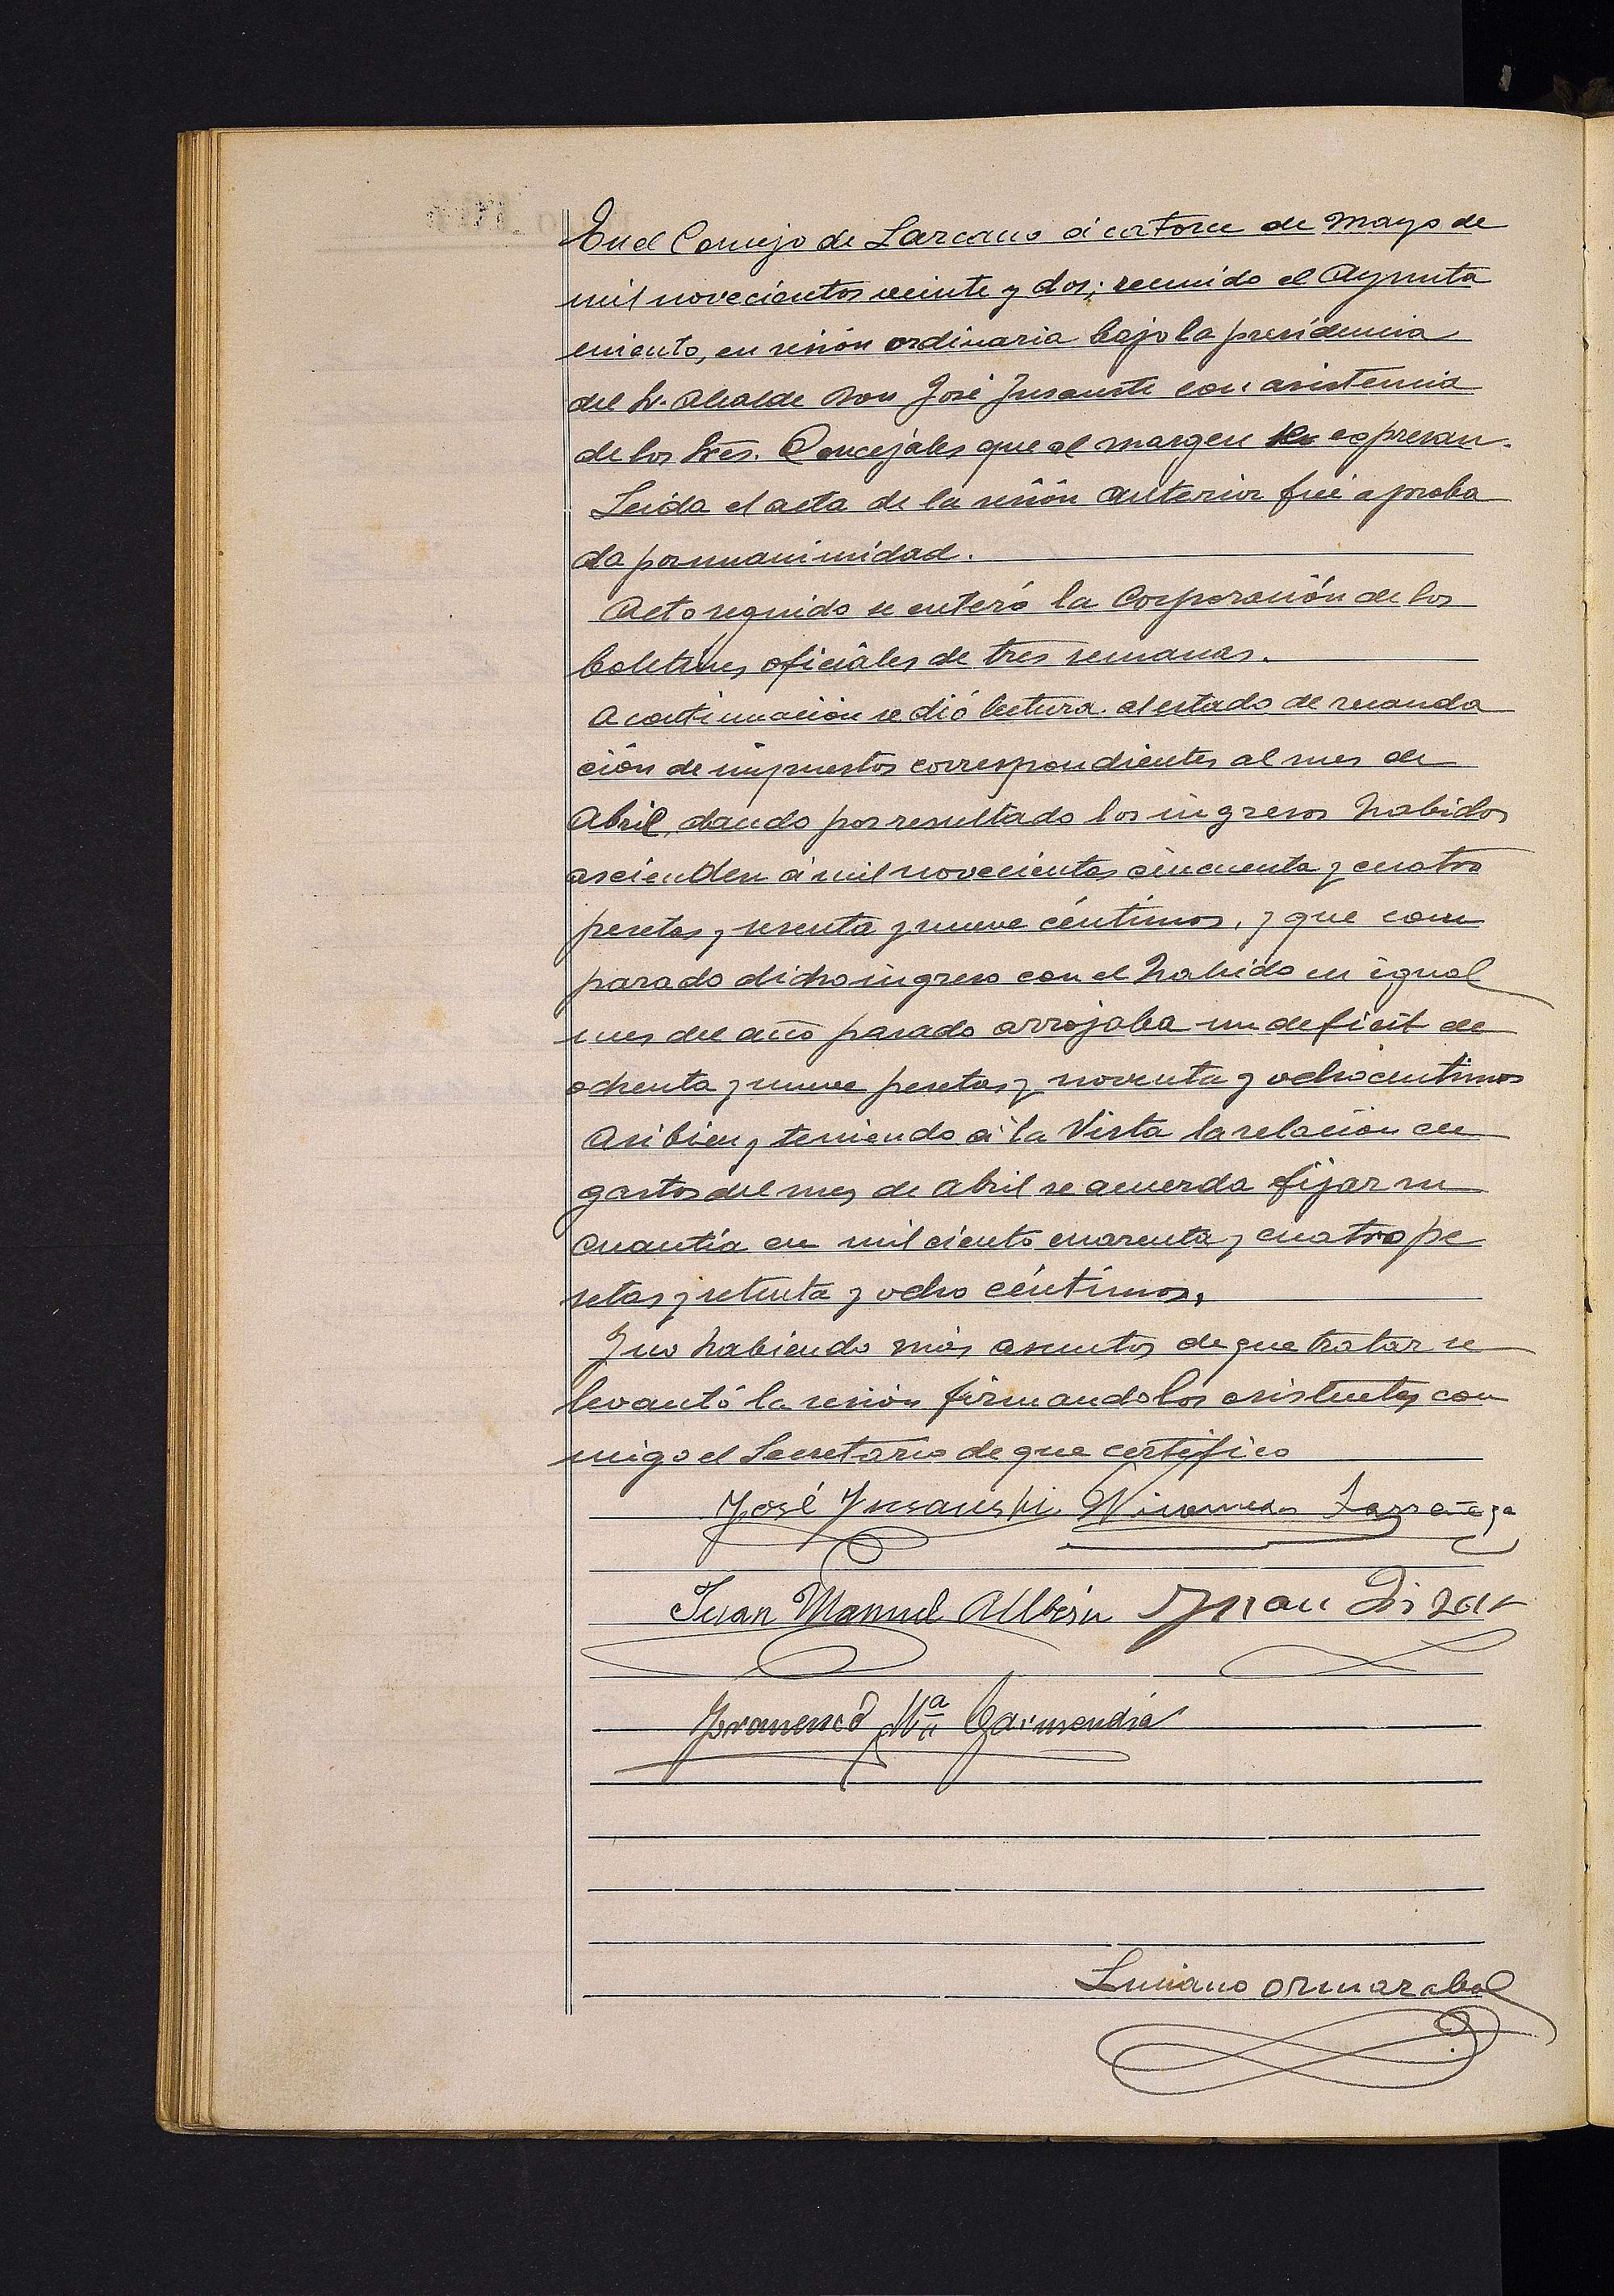 En el Concejo de Lazcano á catorce de Mayo de
mil novecientos veinte y dos; reunido el Ayunta
miento, en sesión ordinaria bajo la presidencia
del Sr. Alcalde Don José Insausti con asistencia
de los Sres. Concejales que al margen se expresan.
Leida el acta de la sesión anterior fué aproba
da por unanimidad.
Acto seguido se enteró la Corporación de los
boletines oficiales de tres semanas.
A continuación se dió lectura al estado de recauda
ción de impuestos correspondientes al mes de
Abril, dando por resultado los ingresos habidos
ascienden á mil novecientas cincuenta y cuatro
pesetas y sesenta y nueve céntimos, y que com
parado dicho ingreso con el habido en igual
mes del año pasado arrojaba un deficit de
ochenta y nueve pesetas y noventa y ocho centimos
Asi bien y teniendo á la Vista la relación de
gastos del mes de abril se acuerda fijar su
cuantía en mil ciento cuarenta y cuatro pe
setas y setenta y ocho céntimos,
Y no habiendo más asuntos de que tratar se
levantó la sesión firmando los asistentes con
migo el Secretario de que certifico
José Insausti Nicomedes Larrañaga
Juan Manuel Alberu Juan
Francisco Mª Garmendia
Luciano Ormazabal